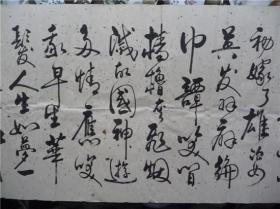 初嫁了雄姿
英发羽扇綸
巾譚笑间
樯櫓灰飛烟
滅故國神遊
多情應笑
我早生華
髮人生如夢一